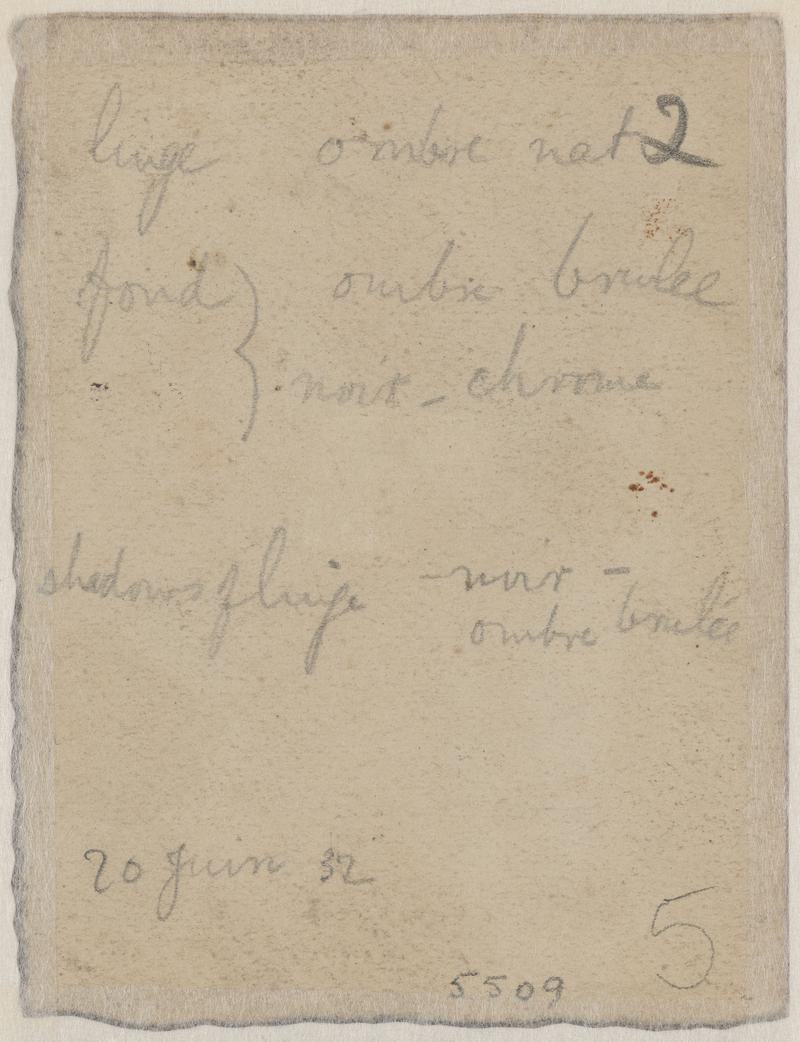 linge ombre nat 2
fond } ombre brulée
noir - chrome
shadows of linge - noir -
ombre brulée
20 Juin 32
5
5509